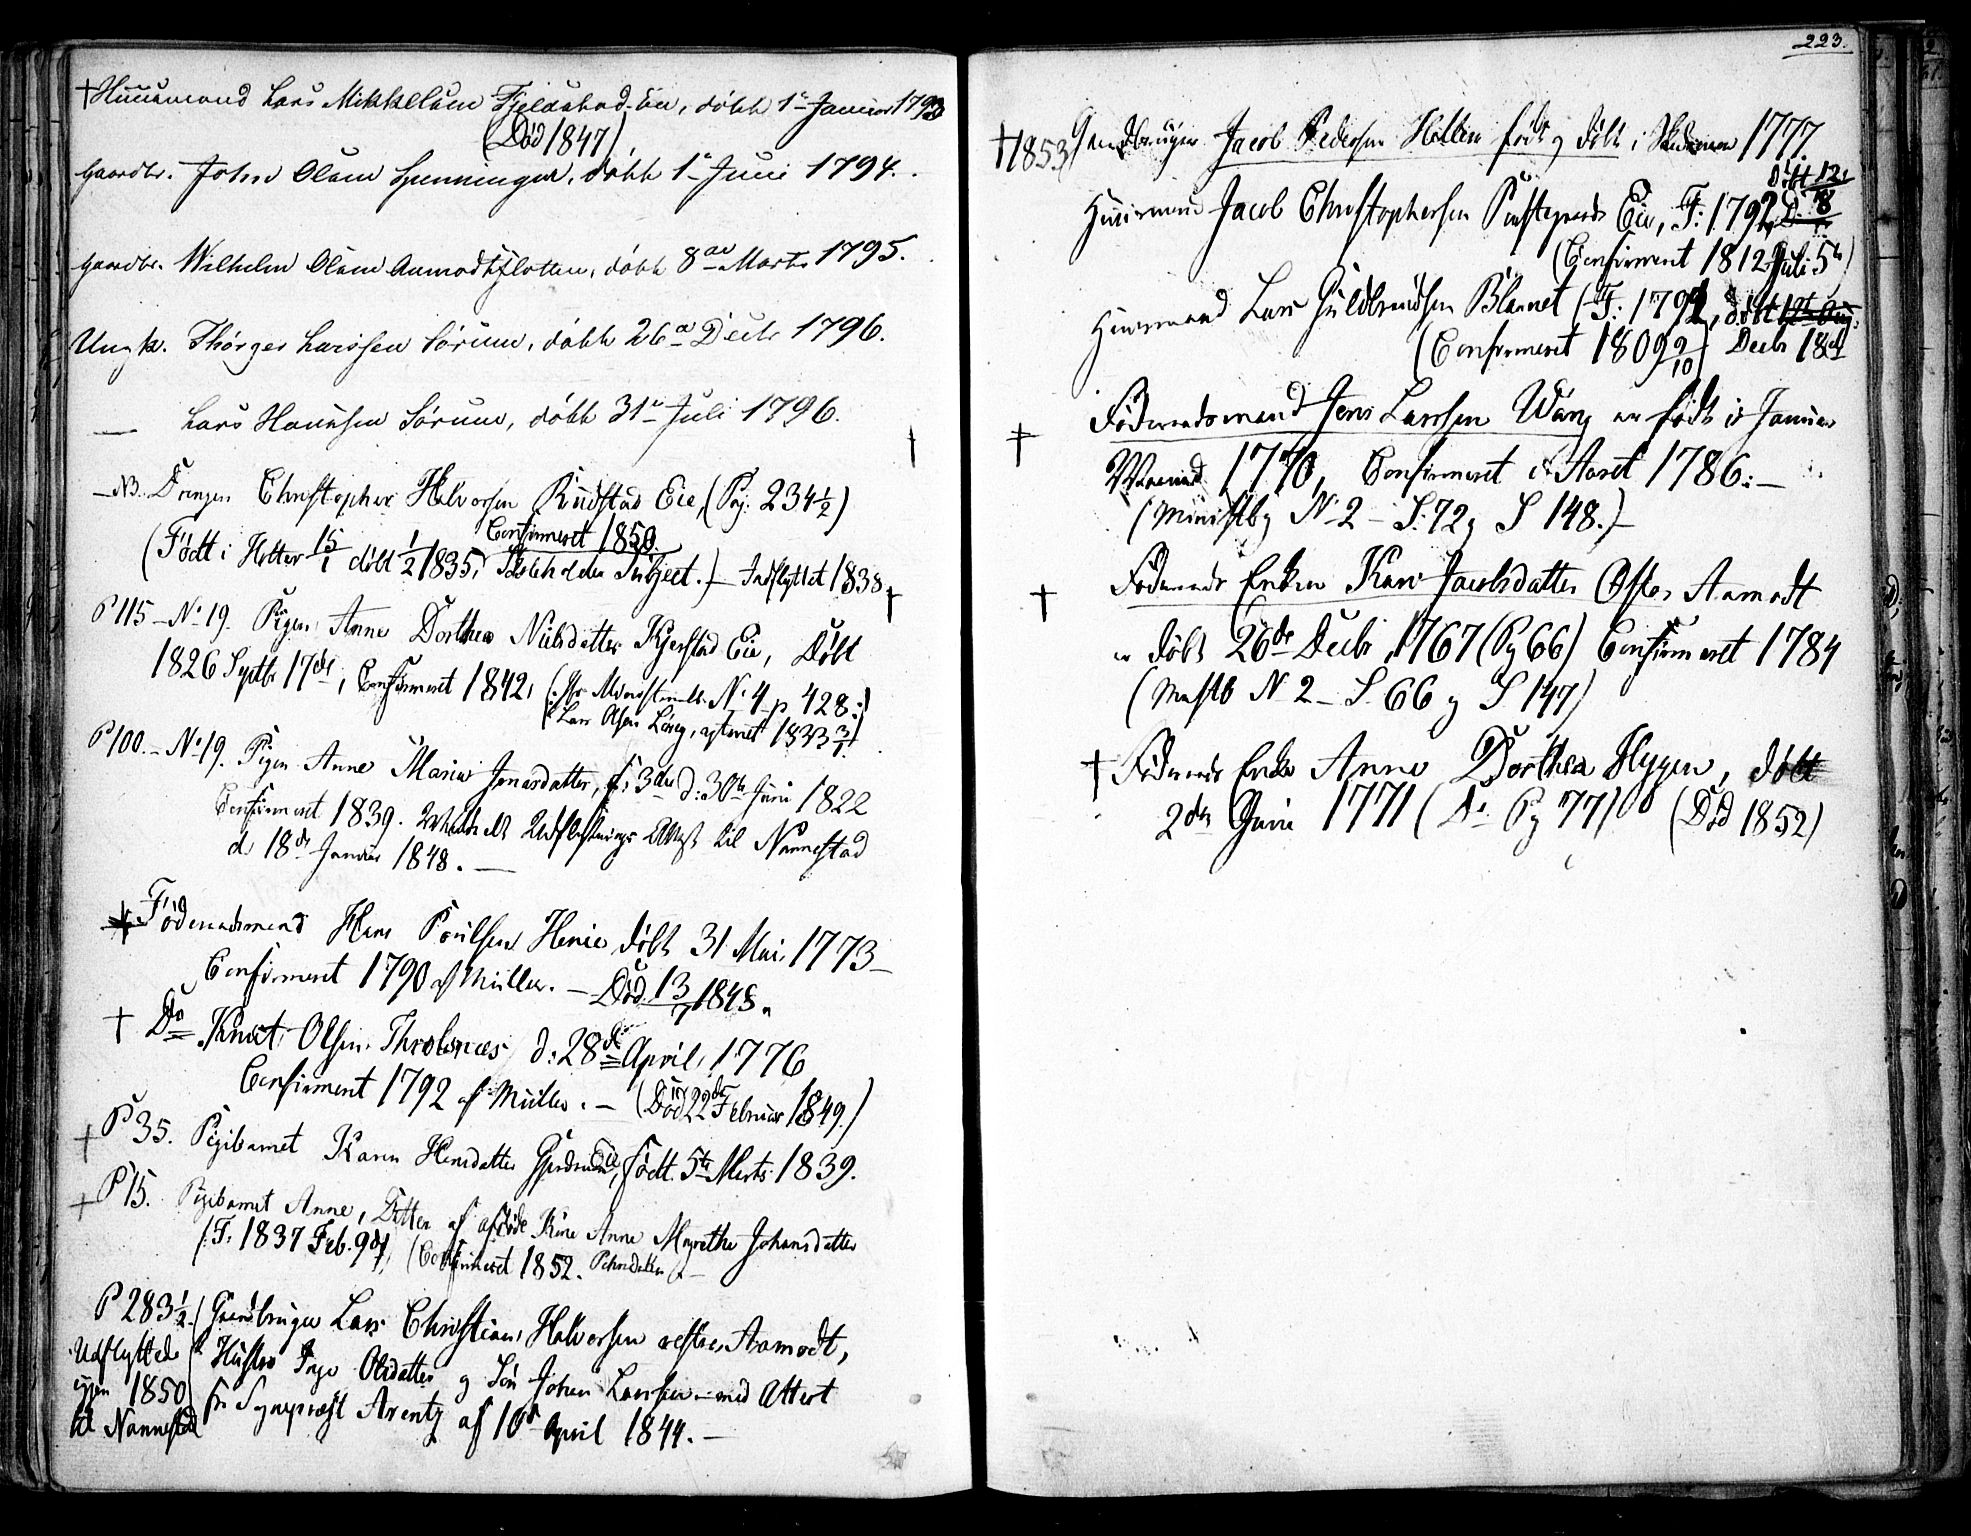 †Huusmand Lars Mikkelsen Fjeldstad-Eie, døbt 1e Januar 1793
(Død 1847)
Gaardbr. John Olsen Spenningen, døbt 1e Juni 1794.
Gaardbr. Wilhelm Olsen Aamodtflotten, døbt 8de Marts 1795.
Ungk. Thorger Larssen Sørum, døbt 26e Decbr 1796.
— Lars Hansen Sørum, døbt 31e Juli 1796.
†
— NB. Drengen Christopher Halvorsen Rudstad Eie, (Pag. 234½)
Confirmeret 1850.
(Født i Hotter 15/1 døbt 1/2 1835, Subject.) — Indflyttet 1838
†
P 115 — No 19. Pigen Anne Dorthea Nielsdatter Kjerstad Eie, Døbt
1826 Septbr 17de, Confirmeret 1842, (Ministerialb. No 4 p 428.)
P 100. — No 19. Pigen Anne Maria Jonasdatter, f: 3die d: 30te Juni 1822
Confirmeret 1839. Udflytnings Attest til Nannestad
d. 18de Januar 1848. —
† Føderaadsmand Hans Poulsen Henie døbt 31 Mai 1773 —
Confirmeret 1790 af Müller. — Død 13/7 1848.
† Do Knut Olsen Throlsnæs, d: 28de April 1776
Confirmeret 1792 af Müller. — (Død 22de Februar 1849.)
† P 35. Pigebarnet Karen Hansdatter Eie, født 5te Marts 1839.
† P 15. Pigebarnet Anne, Datter af afdøde Kone Anne Magrethe Johansdatter
(F. 1837 Feb. 9de, (Confirmeret 1852.
P 283½. (Gaardbruger Lars Christian Halvorsen østre Aamodt,
Udflyttede Hustro Inge Olsdatter og Søn Johan Larssen — med Attest
igjen 1850 fra Sognepræst Arentz af 10de April 1844. —
til Nannestad
223.
† 1853 Gaardbruger Jacob Pedersen Hellen født og døbt i 1777
døbt 12.
Huusmand Jacob Christophersen Præstegaards Eie, F: 1792, D. 8
(Confirmeret 1812 Juli 5te)
Huusmand Lars Guldbrandsen Blanet (F: 1794, døbt
(Confirmeret 1809 9/10) Decbr 18de
† Føderaadsmand Jens Larssen Wæng er født i Januar
Maaned 1770, Confirmeret i Aaret 1786. —
(Ministb N 2 — S. 72 og S 148.) —
† Føderaads Enken Kari Jacobsdatter Øster Aamodt
er døbt 26de Decbr 1767 (Pg 66) Confirmeret 1784
(Mstb N 2 — S. 66 og S 147)
† Føderaads Enke Anne Dorthea Hygen, døbt
2den Juni 1771 (Do Pg 77) (Død 1852)